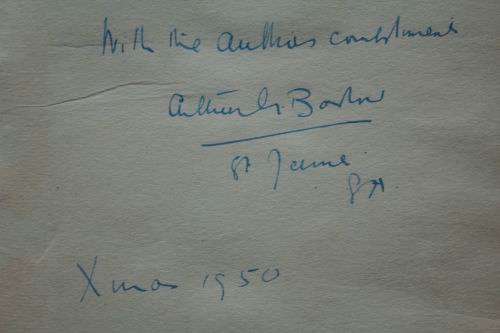 With the authors compliments
Arthur G. Barlow
St James
Xmas 1950